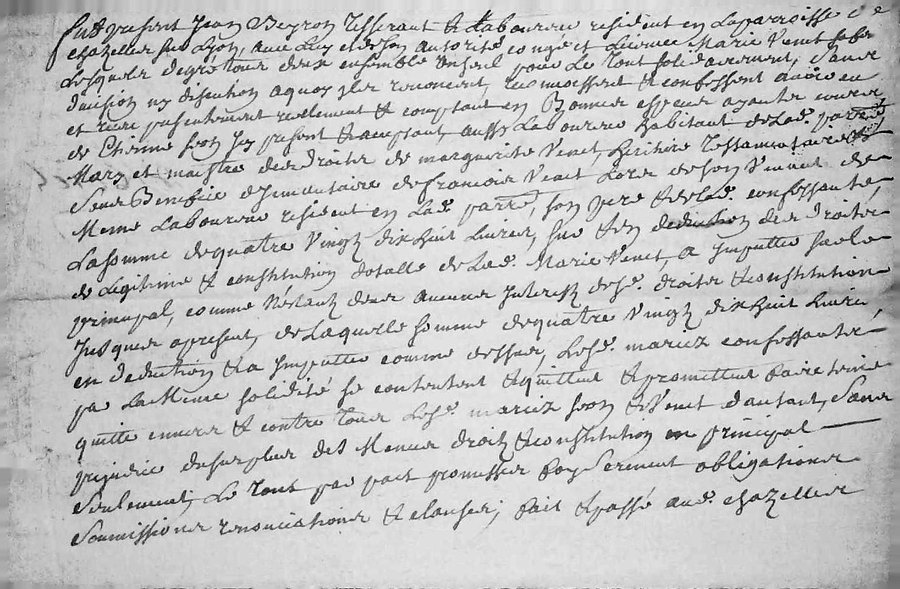 fut présent Jean Veyron Tisserant & Laboureur résident en La parroisse de
chazelles sur Lyon, avec Luy et de son autorité congé et Licence Marie Venet sa fe
Lesquels de gré tous deux ensemble un seul pour Le Tout solidairement, sans
division ny discution a quoy ils renoncent, reconnoissent & confessent avoir eu
et receu présentement reelement & comptant en Bonnes especes ayantes cours,
de Etienne Jcy présent & acceptant, aussy Laboureur habitant de Lad. parre
Mary et maistre des droits de marguerite Venet, heritiere Testamentaire
Sous Benefice d'Jnventaire de françois Venet Lors de son Vivant de
Meme Laboureur résident en Lad. parre, son pere & de Lad. confessante,
La somme de quatre Vingt dix huit Livres, sur & en deduction des droits
de Legitime & constitution dotalle de Lad. Marie Venet, a Jmputer sur le
principal, comme n'étant deus aucuns Jnterets desd. droits & constitution
Jusques a present, de Laquelle somme de quatre Vingt dix huit Livres
en deduction & a Jmputer comme dessus, Lesd. mariez confessants,
par La Meme solidité se contentent & quittent & promettent faire tenir
quitte envers & contre Tous Lesd. mariez & Venet d'autant, sans
prejudice du surplus des Memes droits & constitution en principal
Seulement, Le Tout par pact promesses foy Serment obligations
Soumissions renonciations & clauses; fait & passé aud. chazelles